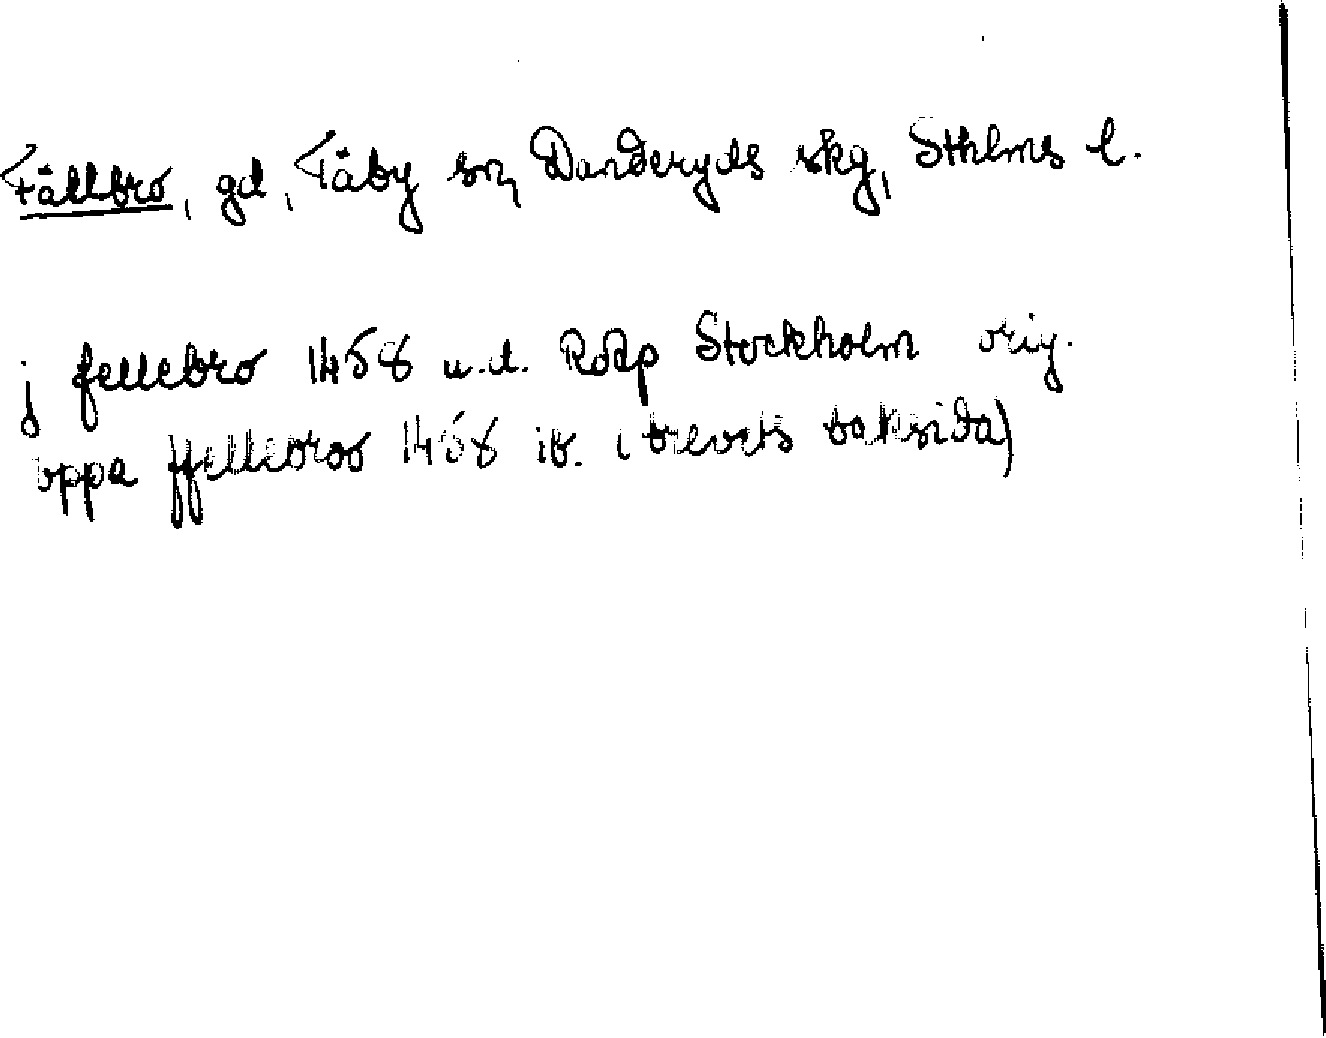 Fällbro, gd, Täby sn, Danderyds skg, Sthlms l.
j fellebro 1458 u.d. RAp Stockholm orig.
vppa ffellebroo 1458 ib. (brevets baksida)